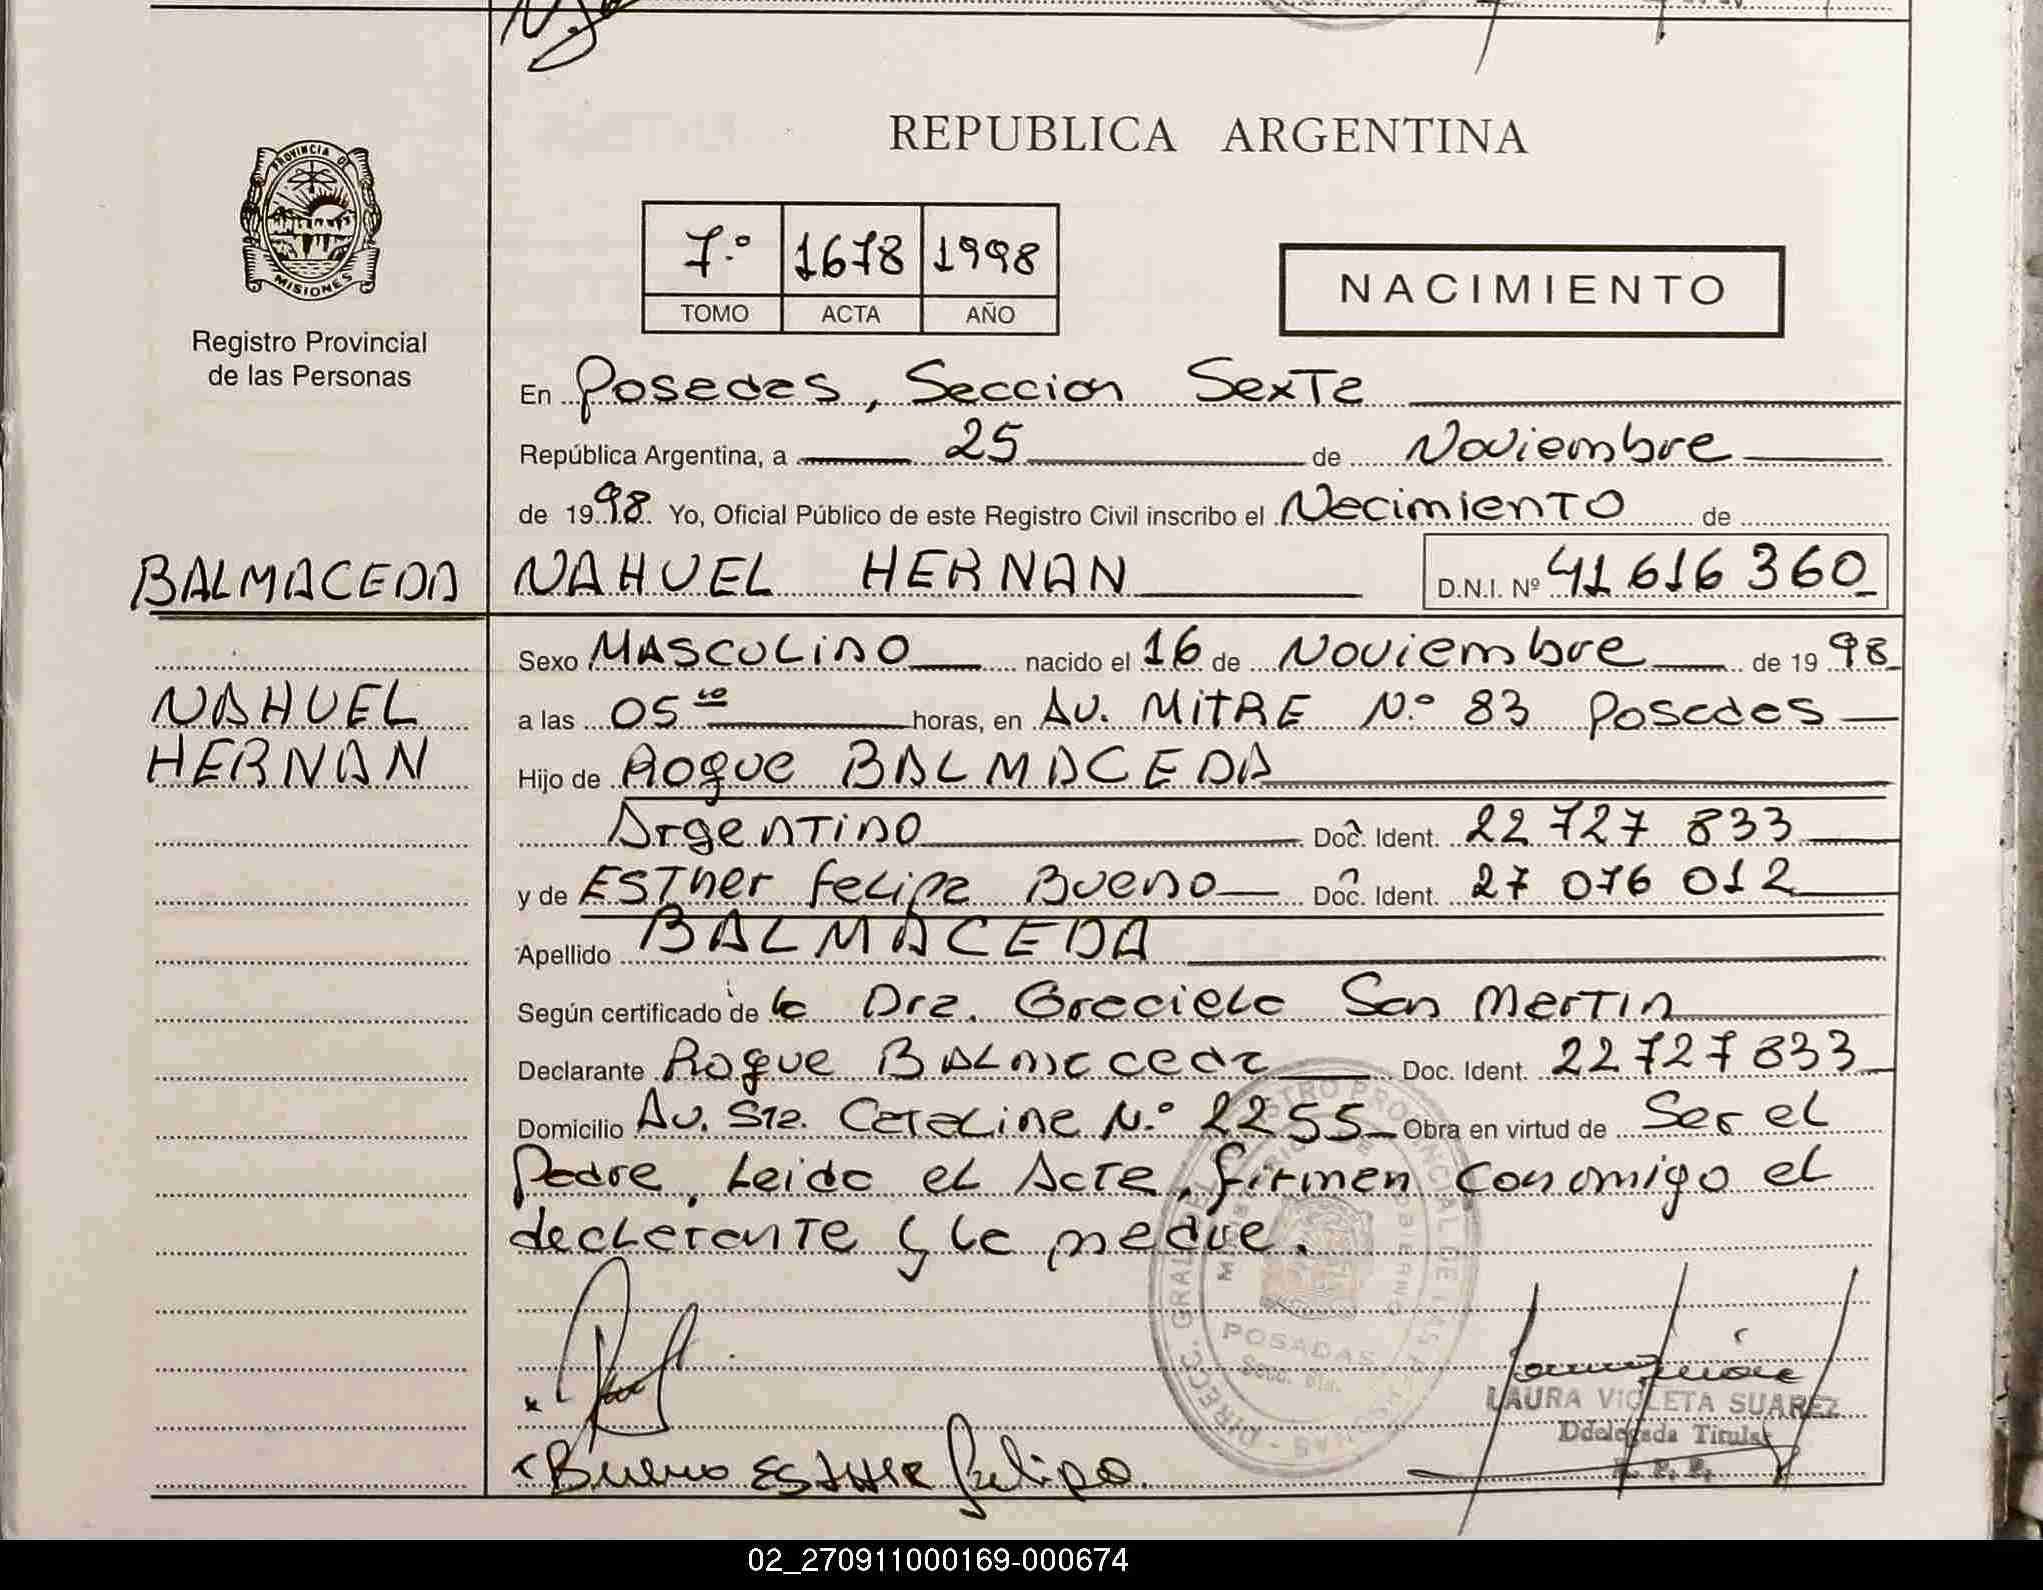 REPUBLICA ARGENTINA
PROVINCIA DE
MISIONES
Registro Provincial
de las Personas
7.º 1678 1998
TOMO ACTA AÑO
NACIMIENTO
En Posadas, Seccion Sexta
República Argentina, a 25 de Noviembre
de 1998 Yo, Oficial Público de este Registro Civil inscribo el Nacimiento de
BALMACEDA NAHUEL HERNAN D.N.I. Nº 41 616 360
Sexo MASCULINO nacido el 16 de Noviembre de 19 98
NAHUEL a las 05 10 horas, en Av. MITRE N.º 83 Posadas
HERNAN Hijo de Roque BALMACEDA
Argentino Doc. Ident. 22 727 833
y de ESTher Felipa Bueno Doc. Ident. 27 076 012
Apellido BALMACEDA
Según certificado de la Dra. Graciela San Martin
Declarante Roque BALMaceda Doc. Ident. 22 727 833
Domicilio Av. Sta. Cataline N.º 2255 Obra en virtud de Ser el
Padre, Leida el Acta, firman conomigo el
declarante y la madre.
DIRECC. GRAL. DEL REGISTRO PROVINCIAL DE LAS PERSONAS
POSADAS
Bueno Esther Felipa.
LAURA VIOLETA SUAREZ
Ddelegada Titular
R. P. P.
02_270911000169-000674